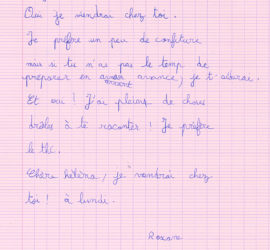 Oui je viendrai chez toi.
Je préfère un peu de confiture
mais si tu n'as pas le temps de
préparer en avance, je t'aiderai.
Et oui ! J'ai pleins de choses
drôles à te raconter ! Je préfère
le thé.
Chère héléna, je viendrai chez
toi ! à lundi.
Roxane